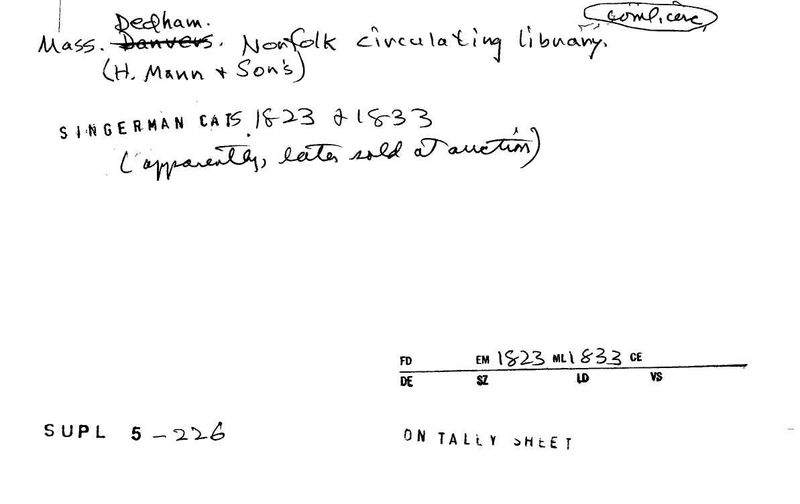 Dedham.
Mass. Danvers. Norfolk circulating library.
(H. Mann + Son's)
SINGERMAN CATS 1823 & 1833
(apparently, later sold at auction)
FD EM 1823 ML 1833 CE
DE SZ LD VS
SUPL 5 - 226
ON TALLY SHEET